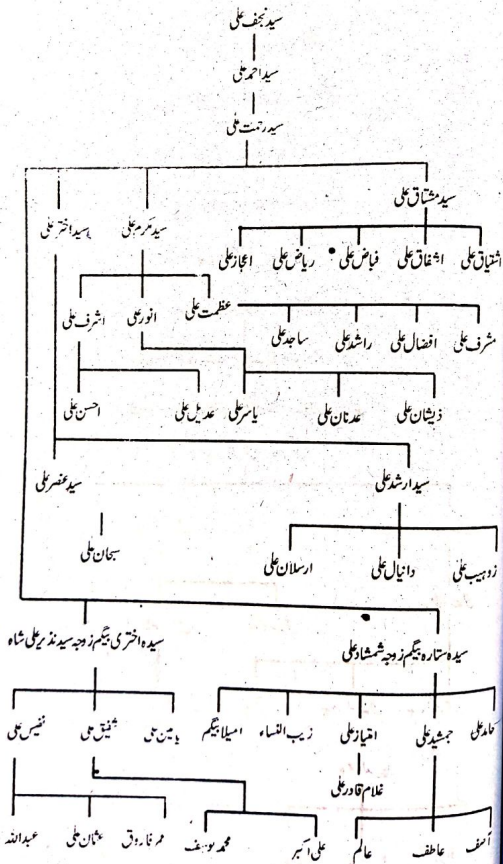 سید نجف علی
سید احمد علی
سید رحمت علی
سید مشتاق علی
سید مکرم علی
سید اختر علی
اشتیاق علی اشفاق علی فیاض علی ریاض علی اعجاز علی
عظمت علی انور علی اشرف علی
مشرف علی افضال علی راشد علی ساجد علی
ذیشان علی عدنان علی یاسر علی عدیل علی احسن علی
سید ارشد علی سید عنصر علی
زوہیب علی دانیال علی ارسلان علی سبحان علی
سیدہ ستارہ بیگم زوجہ شمشاد علی سیدہ اختری بیگم زوجہ سید نذیر علی شاہ
حامد علی جمشید علی امتیاز علی زیب النساء امیلا بیگم یامین علی شفیق علی نفیس علی
غلام قادر علی
آصف عاطف عالم علی اکبر محمد یوسف عمر فاروق عثمان علی عبداللہ